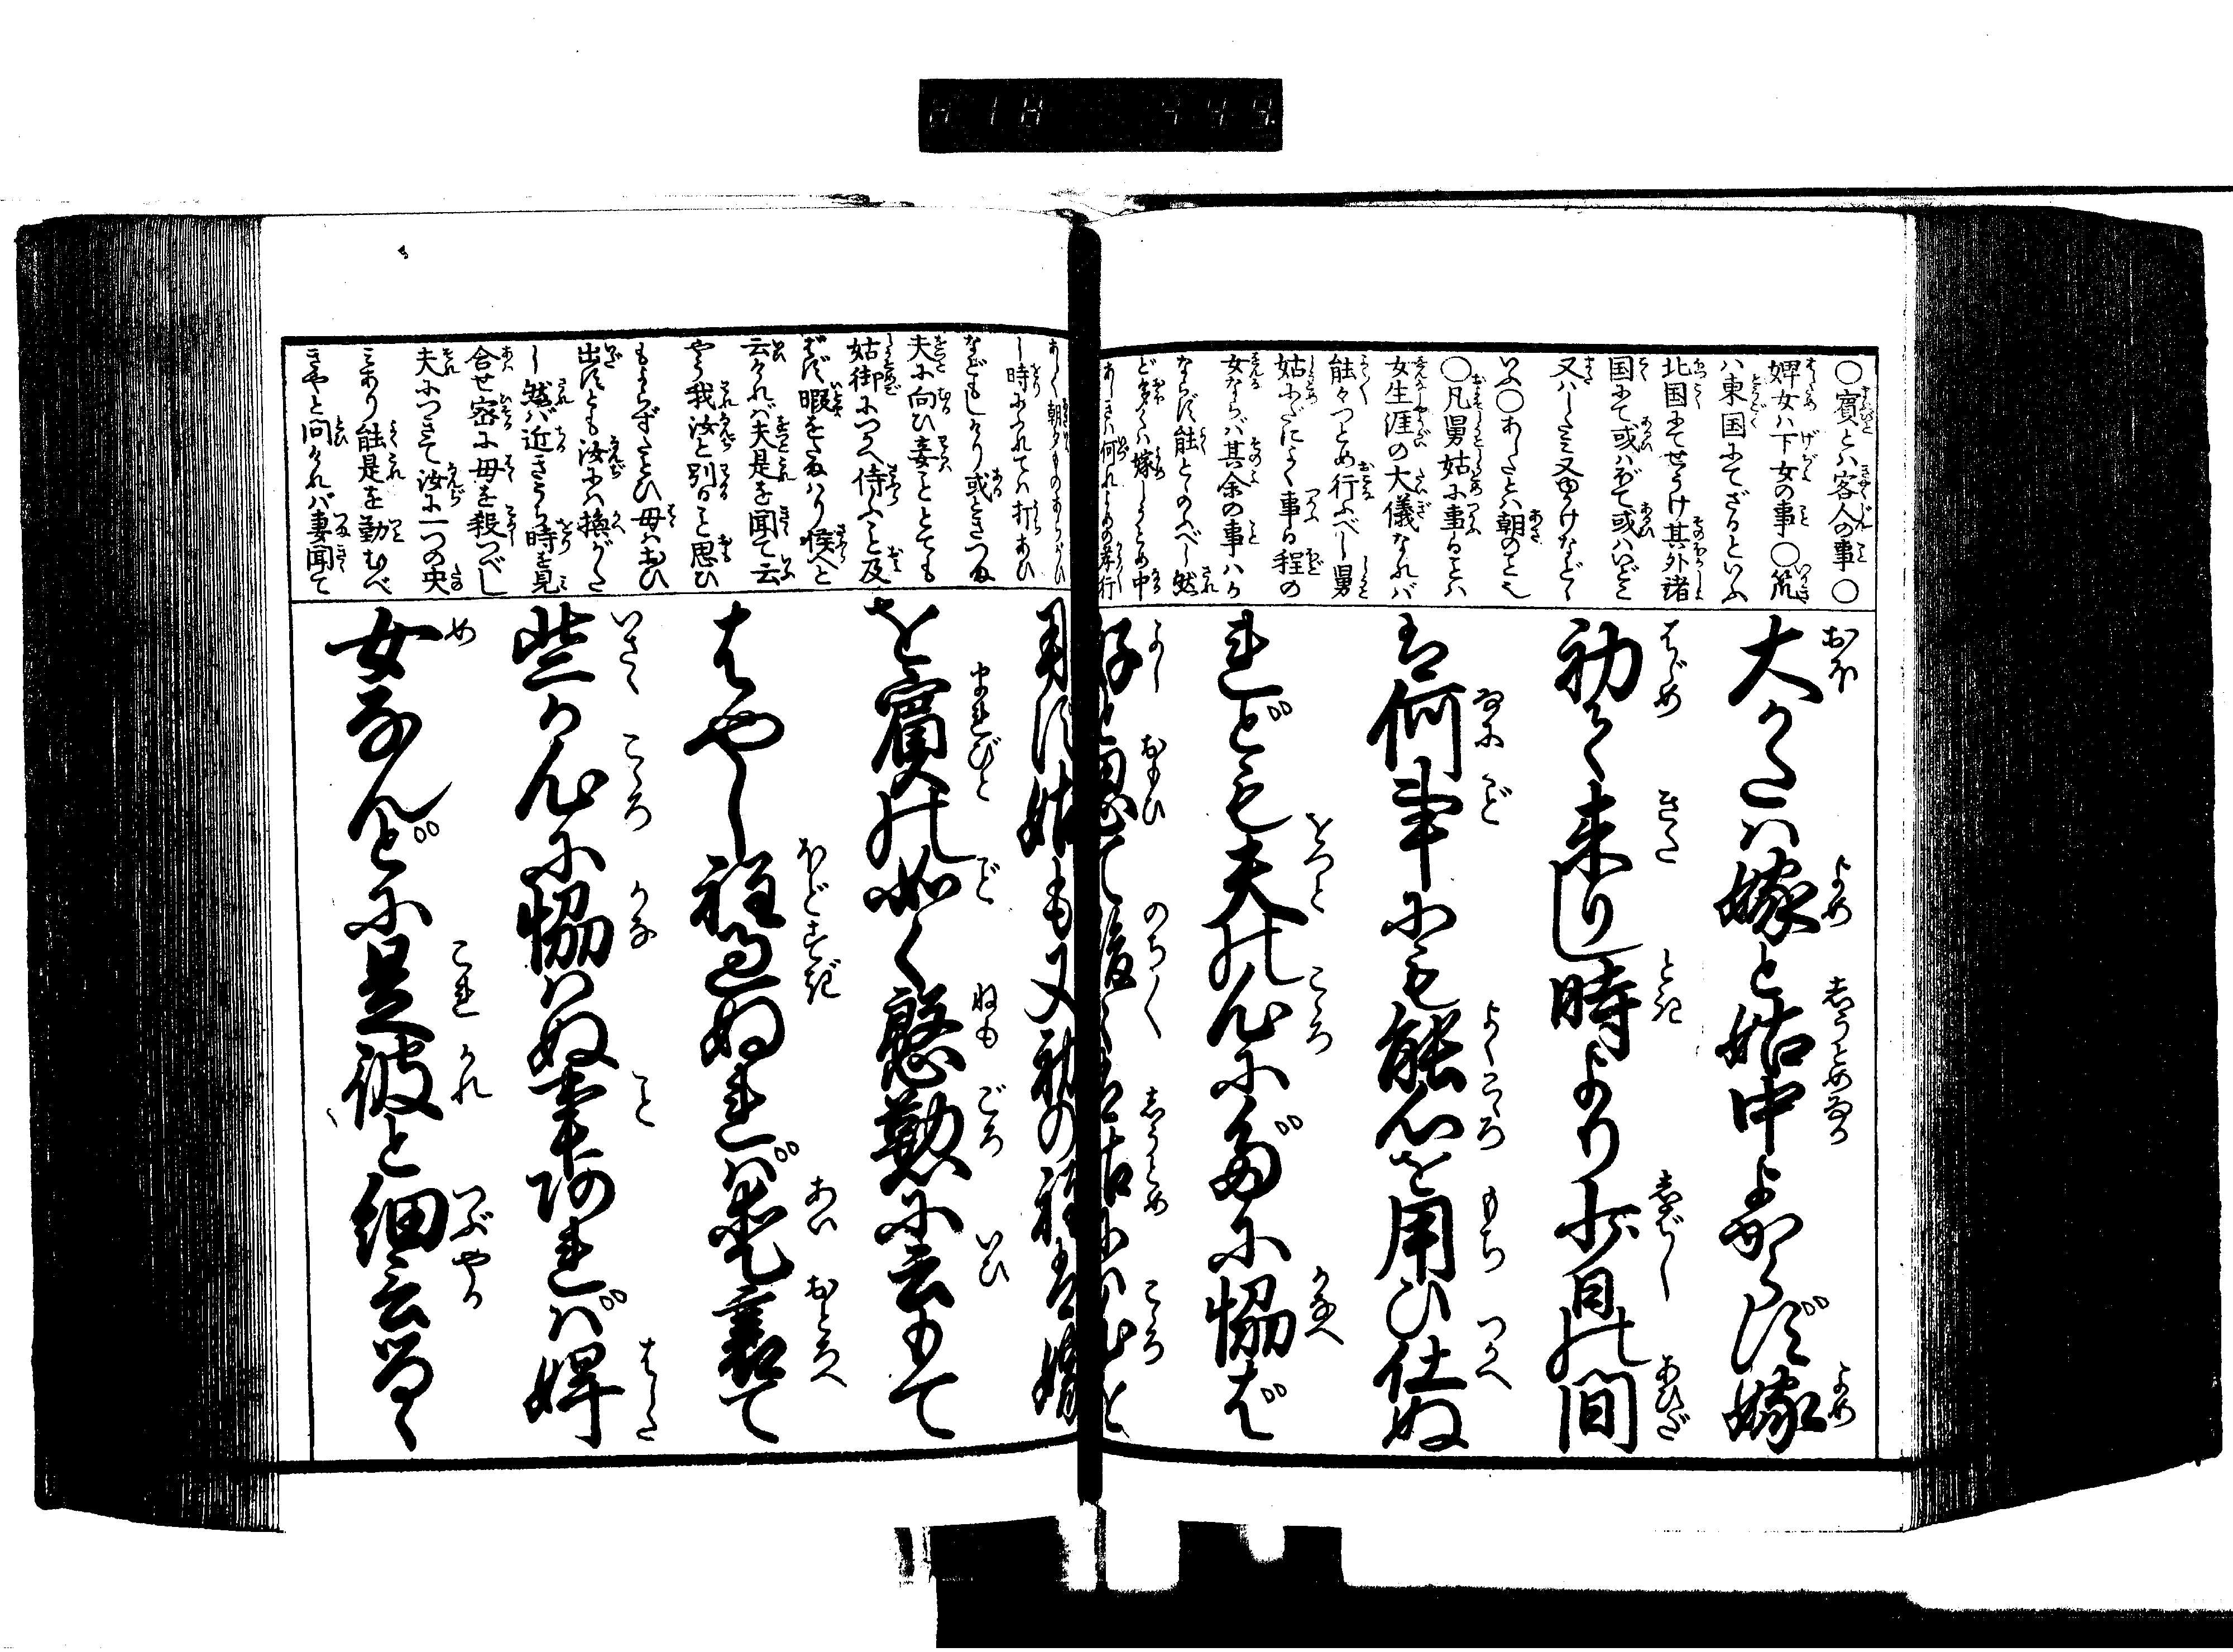 ○賓とハ客人の事○
婢女ハ下女の事○筑
ハ東国にてざるといふ
北国にてせうけ其外諸
国にて或ハぼて或ハいどこ
いふ○あしたとハ朝のこと也
○凡舅姑に事ることハ
女生涯の大儀なれバ
能々つとめ行ふべし舅
姑にだによく事る程の
女ならバ其余の事ハか
ならず能とゝのふべし然
ど多くハ嫁しうとめ中
あしき
し時にふれてハ打あひ
などもしけり或ときつま
夫に向ひ妾ことてても
姑御につかへ侍ふこと及
ばず暇をたまハり候へと
云けれハ夫是を聞て云
やう我汝と別ること思ひ
もよらずたとひ母ハおひ
出すとも汝にハ換がた
し然バ近きうち時を見
合せ密に母を殺つべし
夫につきて汝に一つの央
ミあり能是を勤むべ
きやと問けれバ妻聞て
大かたハ嫁と姑中よからず嫁
初て来りし時より少日の間
は何事にも能心を用ひ仕ぬ
れども夫の心にだに協ば
好と思て後々は姑に心を
用ず姑も又初の程は嫁
を賓の如く慇懃に云もて
はやし程過ぬれば愛衰て
些か心に協ハぬ事あれば婢
女なんどに是彼と細云つゝ